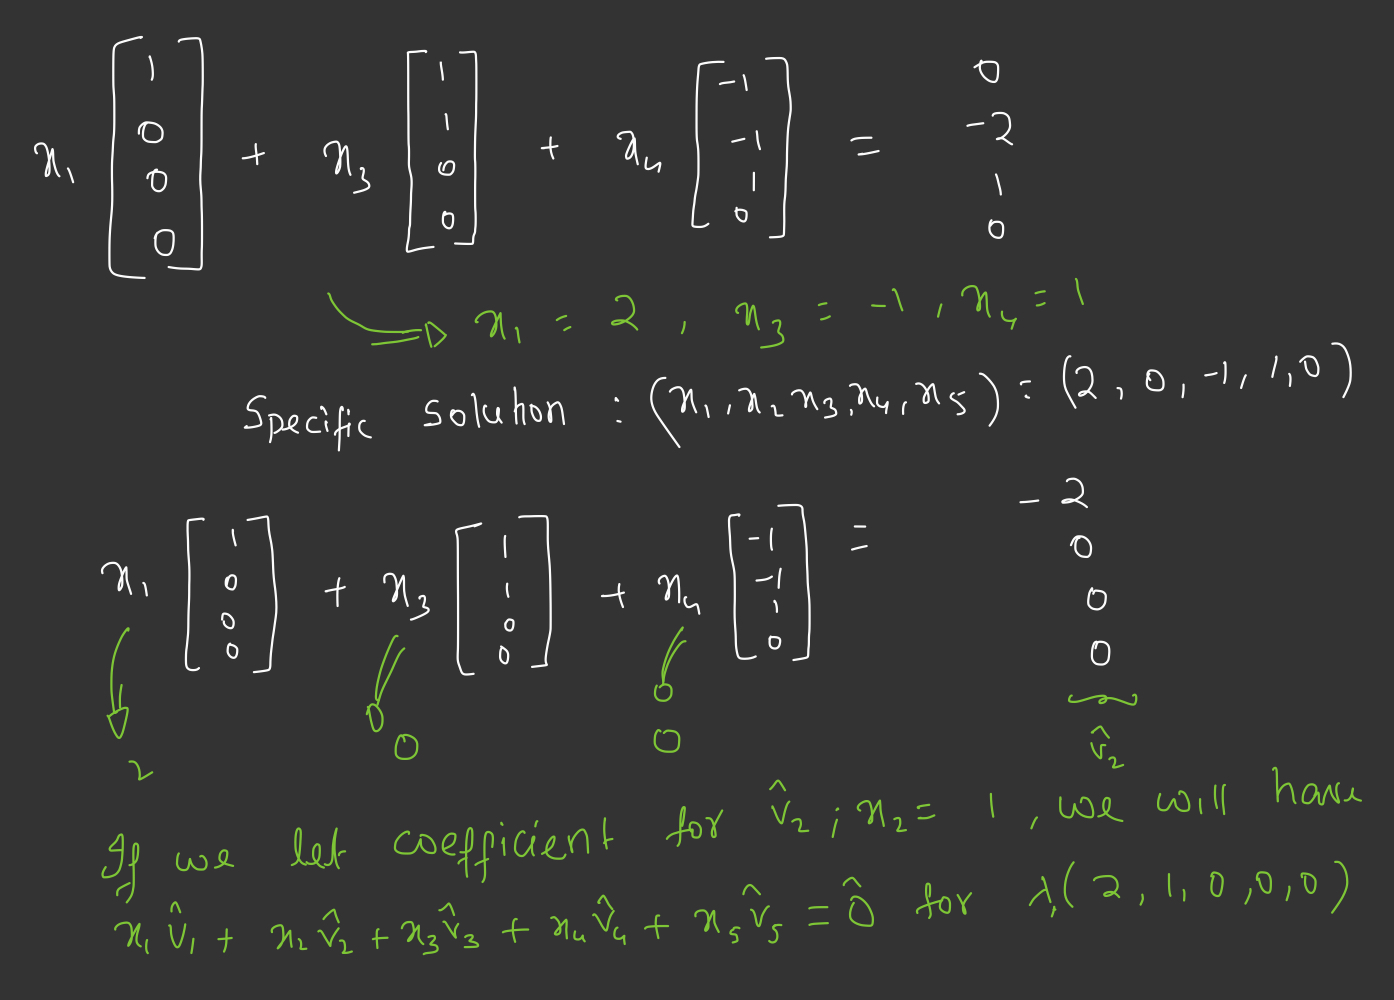 x₁ [1 0 0 0] + x₃ [1 1 0 0] + x₄ [-1 -1 1 0] = 0 -2 1 0
x₁ = 2 , x₃ = -1 , x₄ = 1
Specific solution : (x₁, x₂ x₃, x₄, x₅) = (2, 0, -1, 1, 0)
x₁ [1 0 0 0] + x₃ [1 1 0 0] + x₄ [-1 -1 1 0] = -2 0 0 0
2 0 0 v̂₂
If we let coefficient for v̂₂ ; x₂ = 1 , we will have
x₁ v̂₁ + x₂ v̂₂ + x₃ v̂₃ + x₄ v̂₄ + x₅ v̂₅ = 0̂ for λ₁(2, 1, 0, 0, 0)